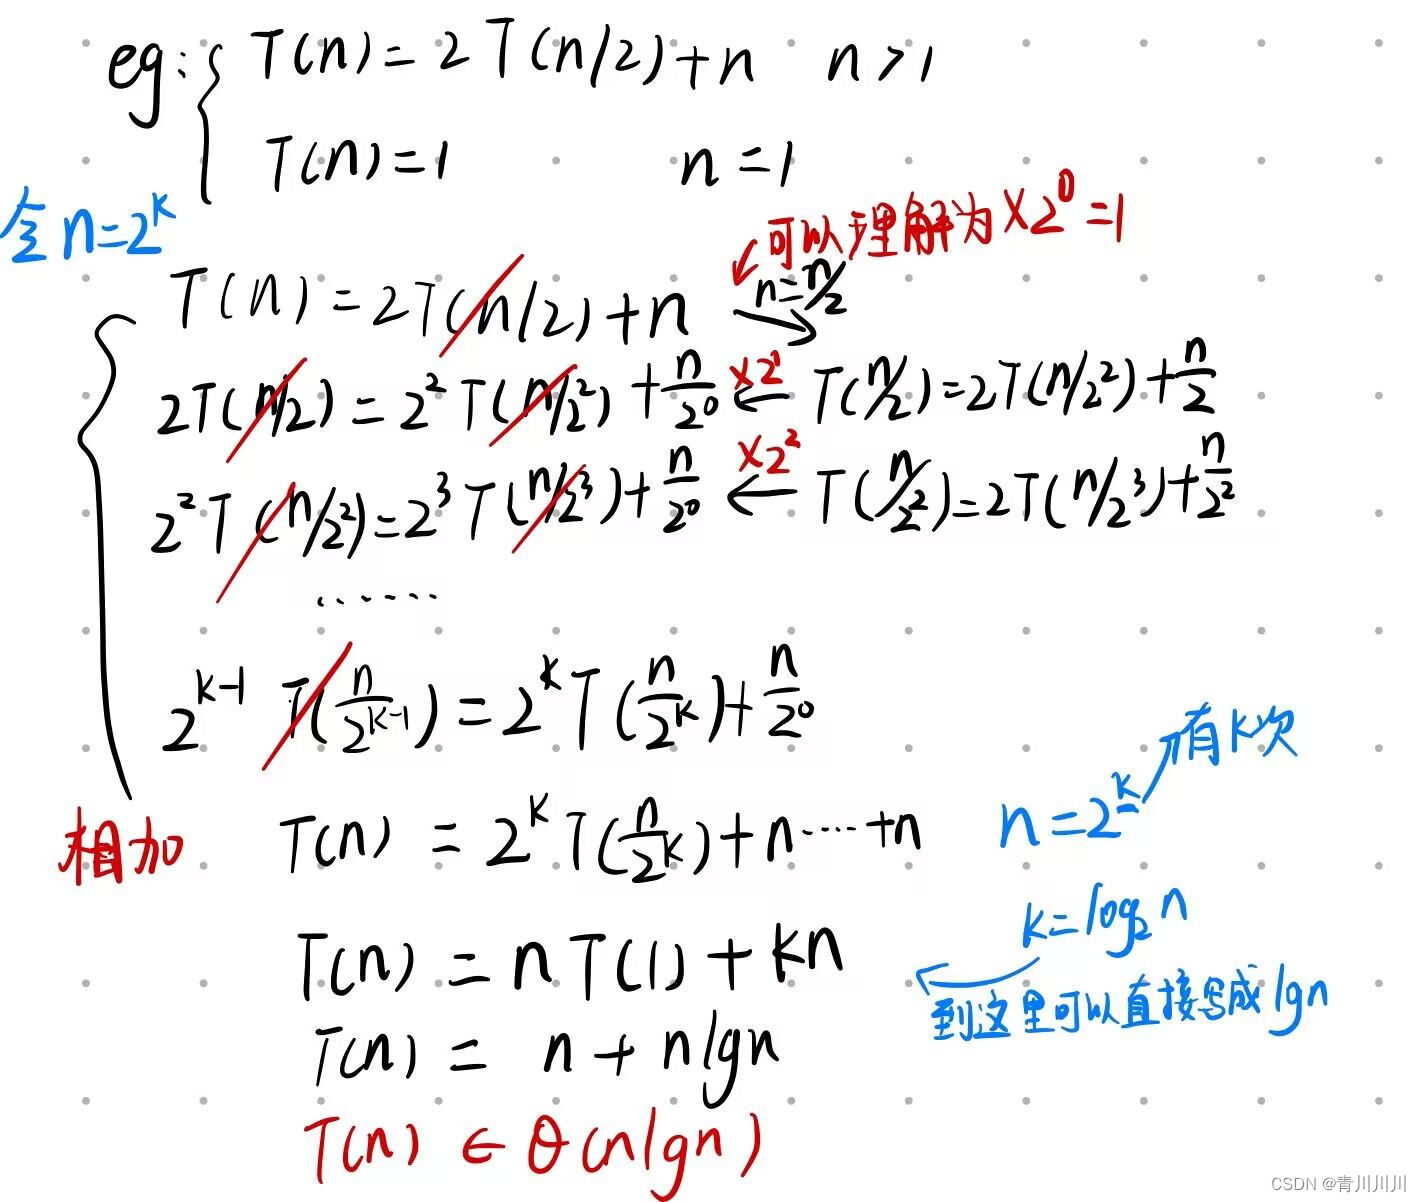 eg: T(n)=2T(n/2)+n n>1
T(n)=1 n=1
令n=2^k
可以理解为×2^0=1
T(n)=2T(n/2)+n n=n/2
2T(n/2)=2^2T(n/2^2)+n/2^0 ×2^1 T(n/2)=2T(n/2^2)+n/2
2^2T(n/2^2)=2^3T(n/2^3)+n/2^0 ×2^2 T(n/2^2)=2T(n/2^3)+n/2^2
......
2^{k-1}T(n/2^{k-1})=2^kT(n/2^k)+n/2^0
有k次
相加 T(n)=2^kT(n/2^k)+n····+n n=2^k
k=log_2n
T(n)=nT(1)+kn
到这里可以直接写成lgn
T(n)=n+nlgn
T(n)∈θ(nlgn)
CSDN @青川川川